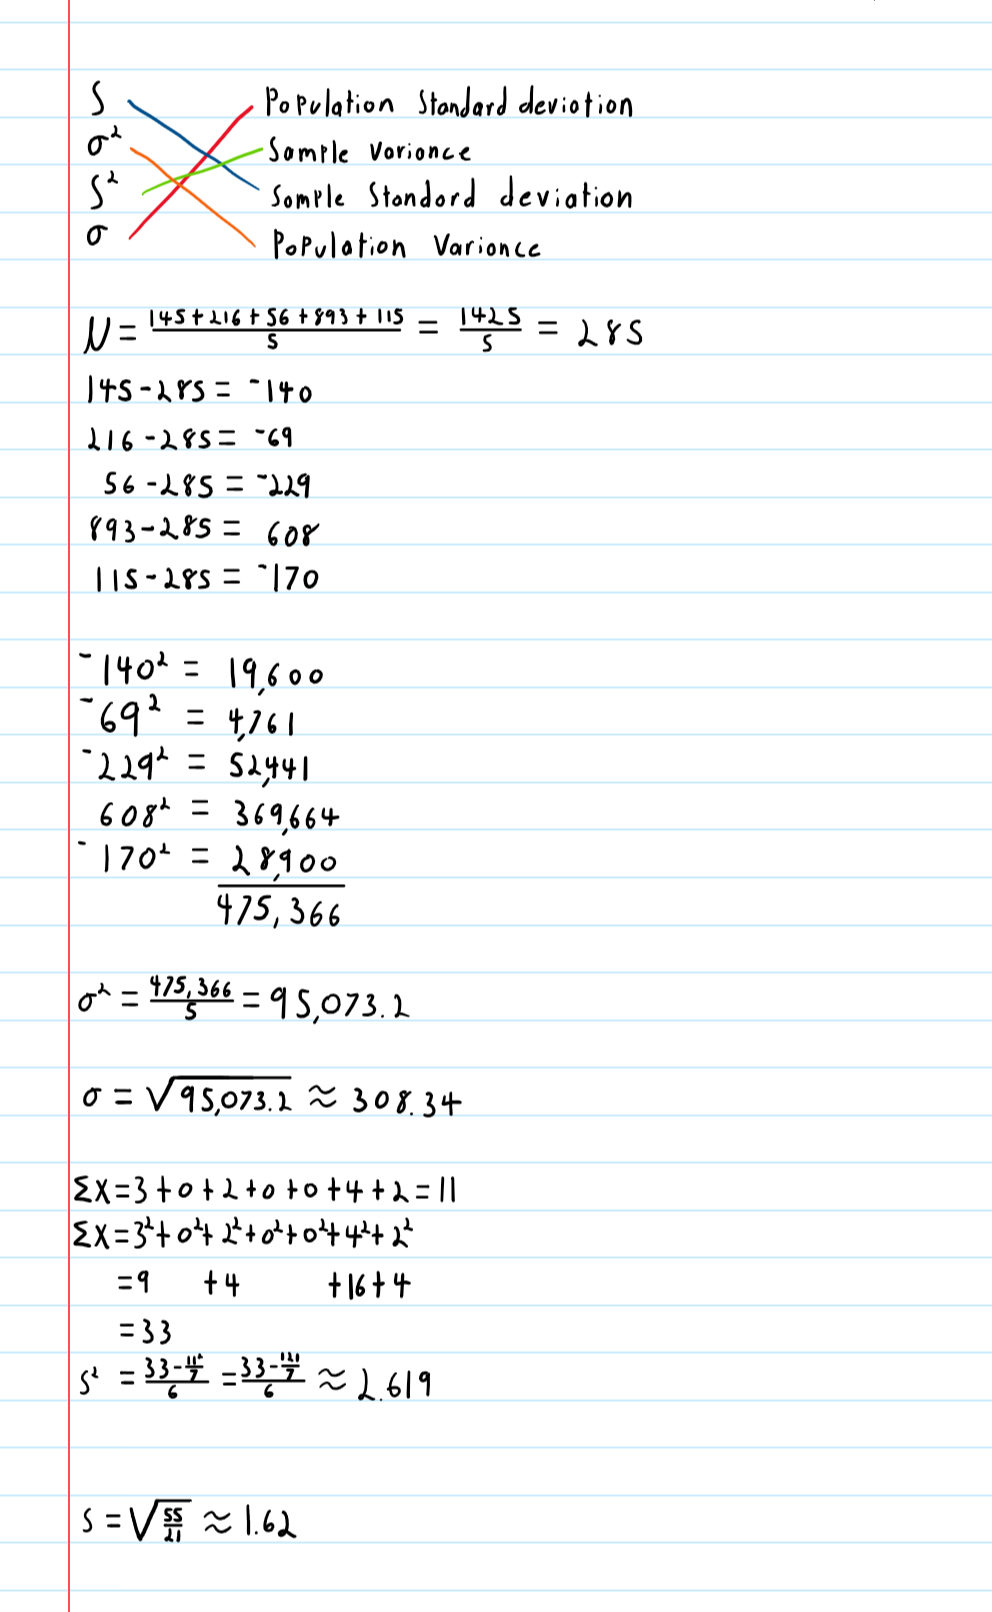 S Population Standard deviation
σ² Sample Variance
S² Sample Standard deviation
σ Population Variance
N = (145 + 216 + 56 + 893 + 115)/5 = 1425/5 = 285
145 - 285 = ⁻140
216 - 285 = ⁻69
56 - 285 = ⁻229
893 - 285 = 608
115 - 285 = ⁻170
⁻140² = 19,600
⁻69² = 4,761
⁻229² = 52,441
608² = 369,664
⁻170² = 28,900
475,366
σ² = 475,366/5 = 95,073.2
σ = √95,073.2 ≈ 308.34
ΣX = 3 + 0 + 2 + 0 + 0 + 4 + 2 = 11
ΣX = 3² + 0² + 2² + 0² + 0² + 4² + 2²
= 9 + 4 + 16 + 4
= 33
S² = (33 - 11²/7)/6 = (33 - 121/7)/6 ≈ 2.619
S = √(55/21) ≈ 1.62